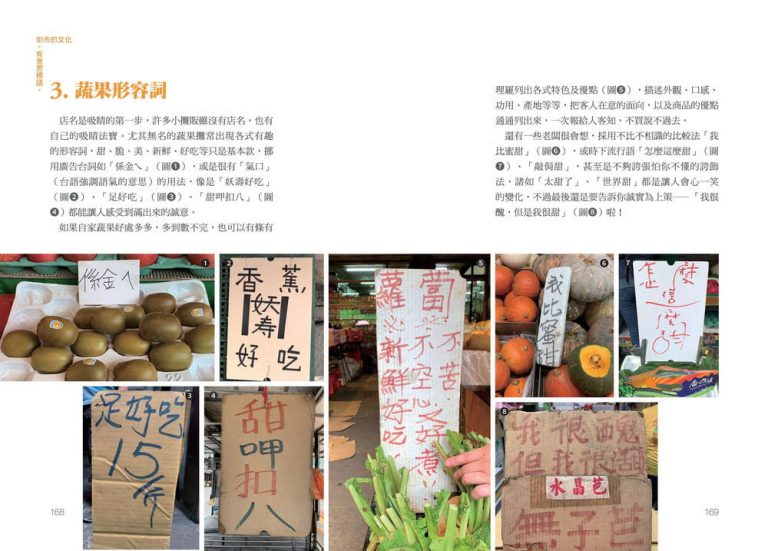 街市的文化
・有意思標語・
3. 蔬果形容詞
店名是吸睛的第一步，許多小攤販雖沒有店名，也有
自己的吸睛法寶。尤其無名的蔬果攤常出現各式有趣
的形容詞，甜、脆、美、新鮮、好吃等只是基本款，挪
用廣告台詞如「係金ㄟ」（圖❶），或是很有「氣口」
（台語強調語氣的意思）的用法，像是「妖壽好吃」
（圖❷）、「足好吃」（圖❸）、「甜呷扣八」（圖
❹）都能讓人感受到滿出來的誠意。
如果自家蔬果好處多多，多到數不完，也可以有條有
理羅列出各式特色及優點（圖❺），描述外觀、口感、
功用、產地等等，把客人在意的面向，以及商品的優點
通通列出來，一次報給人客知，不買說不過去。
還有一些老闆很會想，採用不比不相識的比較法「我
比蜜甜」（圖❻），或時下流行語「怎麼這麼甜」（圖
❼）、「敲侷甜」，甚至是不夠誇張怕你不懂的誇飾
法，諸如「太甜了」、「世界甜」都是讓人會心一笑
的變化，不過最後還是要告訴你誠實為上策——「我很
醜，但是我很甜」（圖❽）啦！
❶
係金ㄟ
❷
香蕉
妖
寿
好吃
❸
足好吃
15/斤
❹
甜
呷
扣
八
❺
蘿蔔
不苦
不空心又好煮
新鮮好吃
❻
我比蜜甜
❼
怎麼
這麼
甜
❽
我很醜
但我很甜
水晶芭
無子芭
168
169